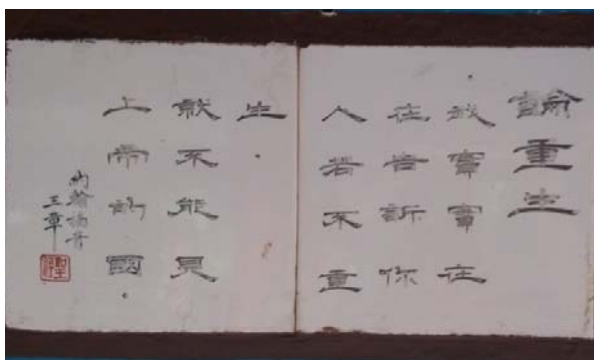 論重生
我實實在
在告訴你
人若不重
生．
就不能見
上帝的國．
約翰福音
三章